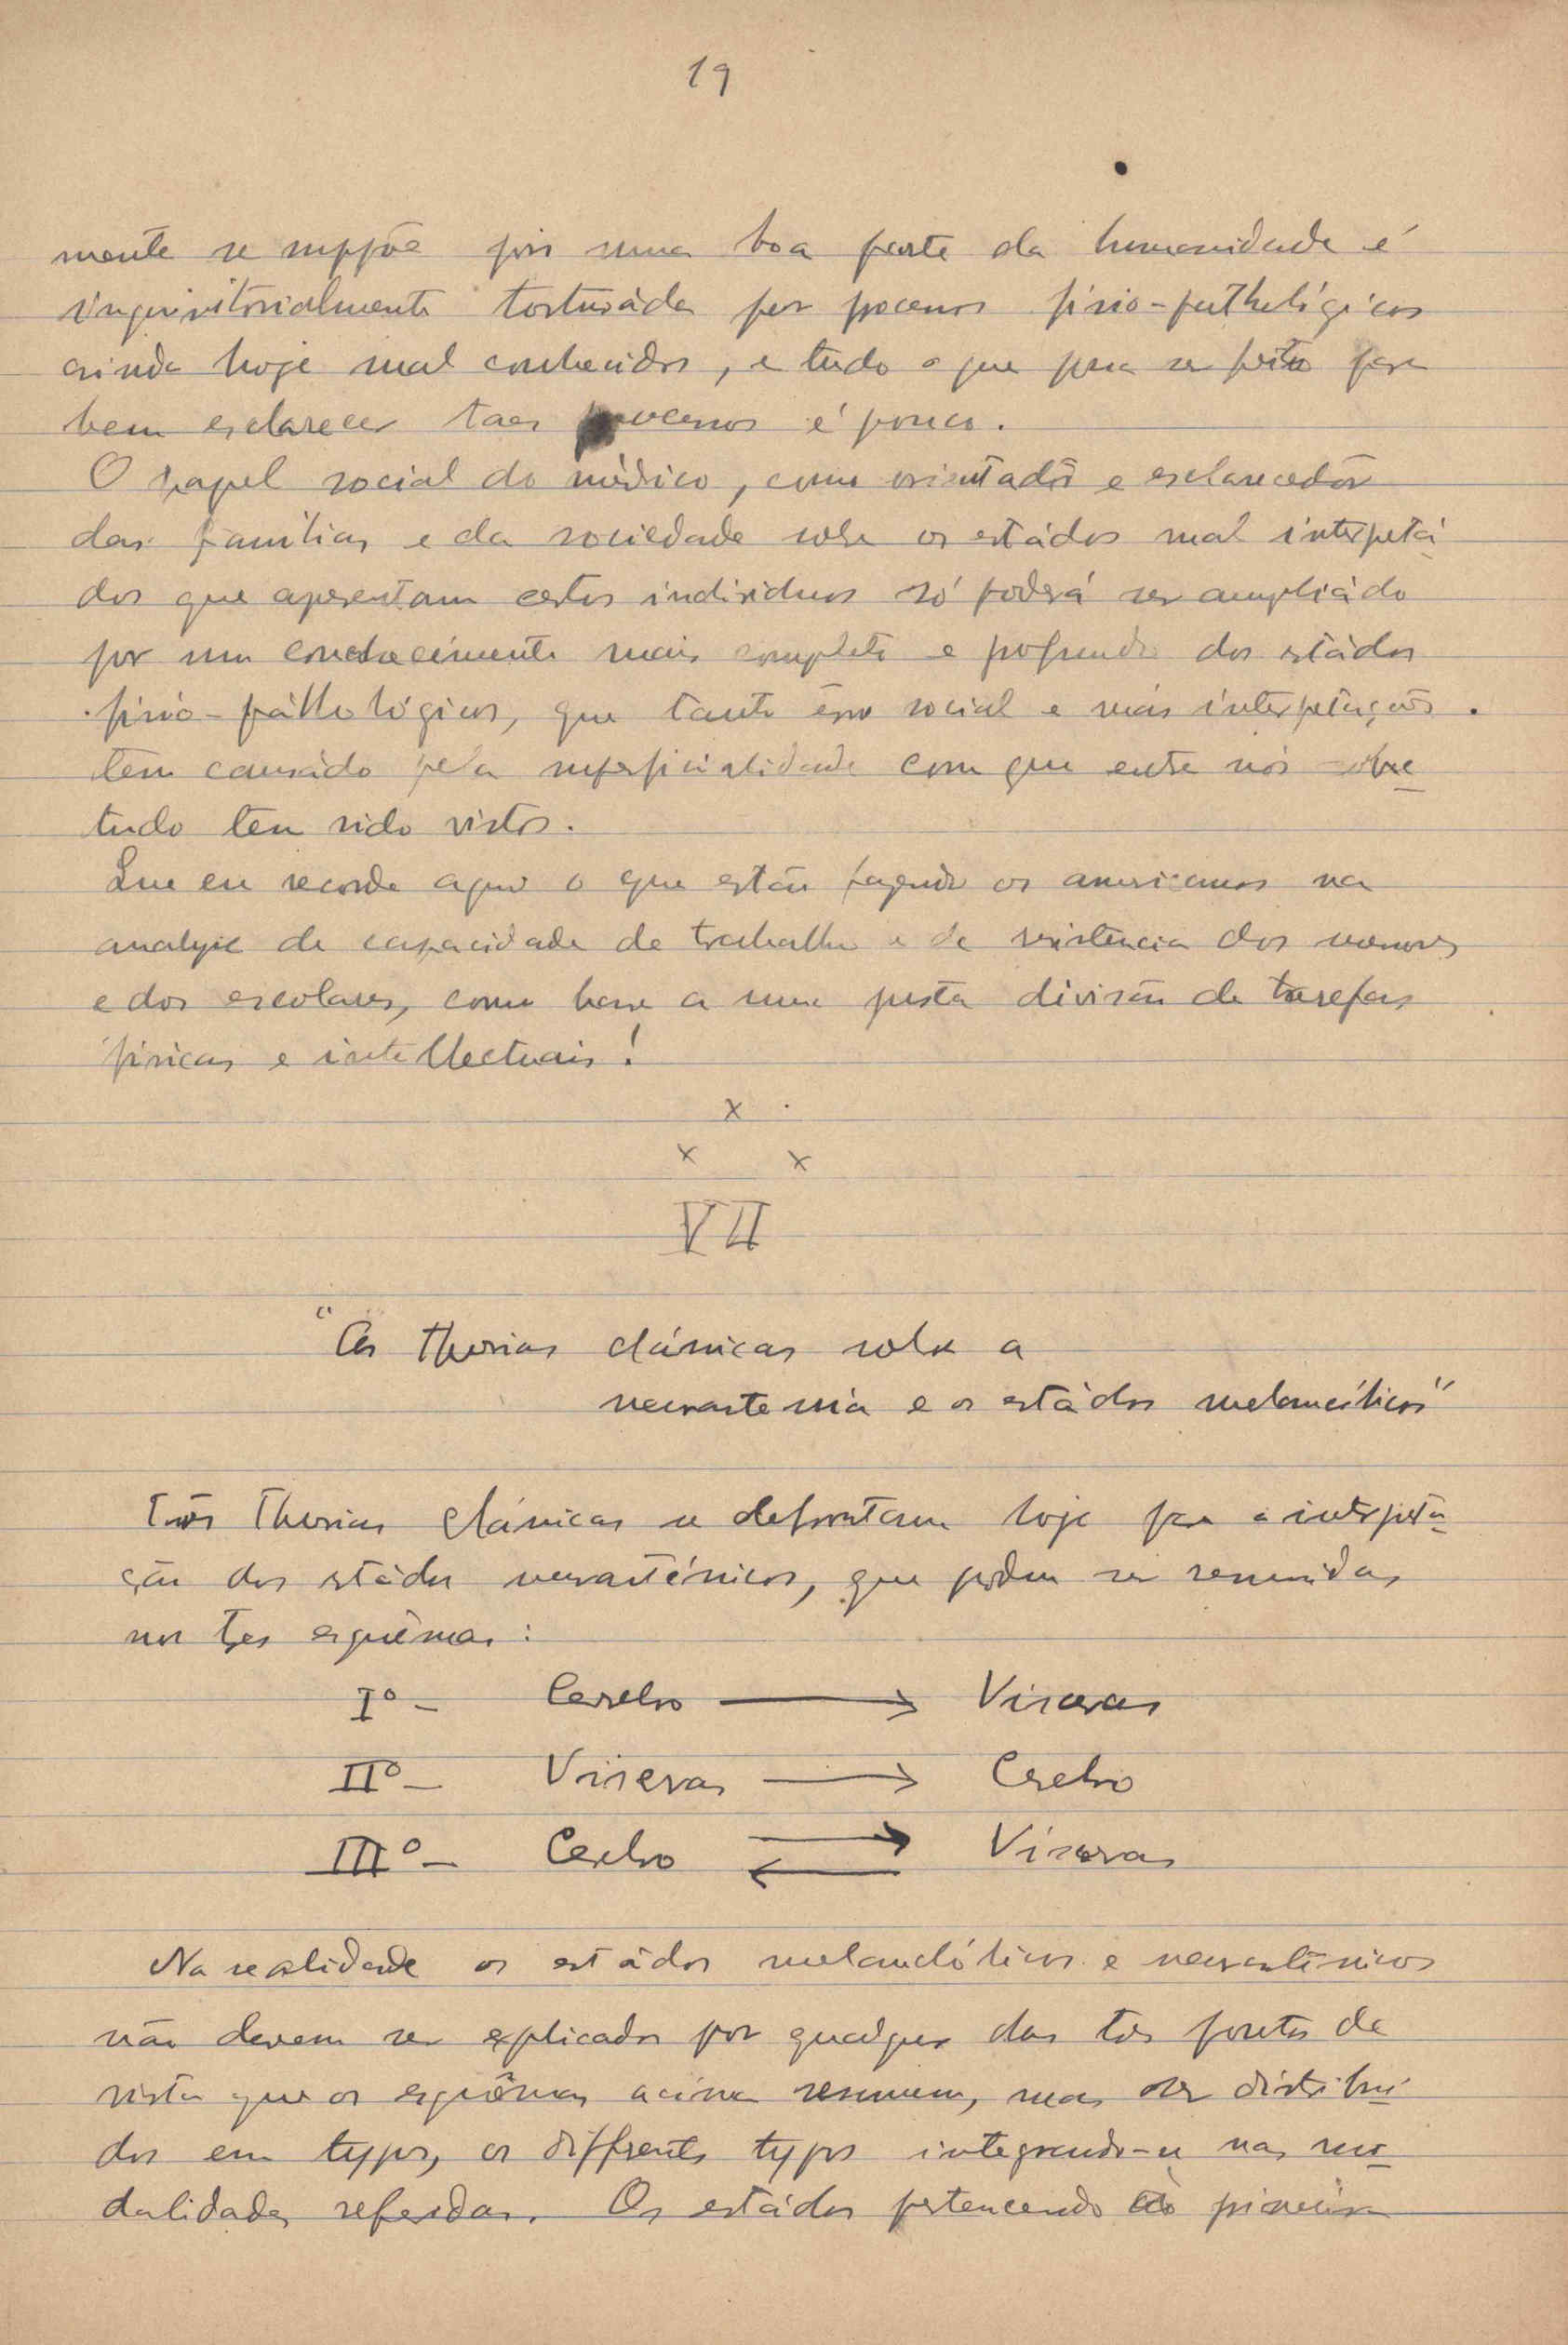 19
mente se suppõe pois uma boa parte da humanidade é
inquisitorialmente torturáda por processos fisio-pathológicos
ainda hoje mal conhecidos, e tudo o que possa ser feito para
bem esclarecer taes processos é pouco.
O papel social do médico, como orientadôr e esclarecedôr
das familias e da sociedade sobre os estádos mal interpretá
dos que apresentam certos individuos só poderá ser ampliádo
por um conhecimento mais completo e profundo dos estádos
fisio-páthológicos, que tanto êrro social e más interpretações
tem causádo pela superficialidade com que entre nós sobre
tudo tem sido vistos.
Que eu recorde aqui o que estão fazendo os americanos na
analyse da capacidade de trabalho e de resistencia dos menores
e dos escolares, como base a uma justa divisão de tarefas
fisicas e intellectuais!
x
x x
VII
"As theorias clássicas sobre a
neurastenia e os estádos melancólicos"
Três theorias clássicas se defrontam hoje para a interpreta-
ção dos estádos neurasténicos, que podem ser resumidas
nos tres esquêmas:
Iº - Cerebro ⟶ Visceras
IIº - Visceras ⟶ Cerebro
IIIº - Cerebro ⇄ Visceras
Na realidade os estádos melancólicos e neurasténicos
não devem ser explicados por qualquer dos tres pontos de
vista que os esquêmas acima resumem, mas ser distribui
dos em typos, os differentes typos integrando-se nas mo-
dalidades referidas. Os estádos pertencendo ao primeiro